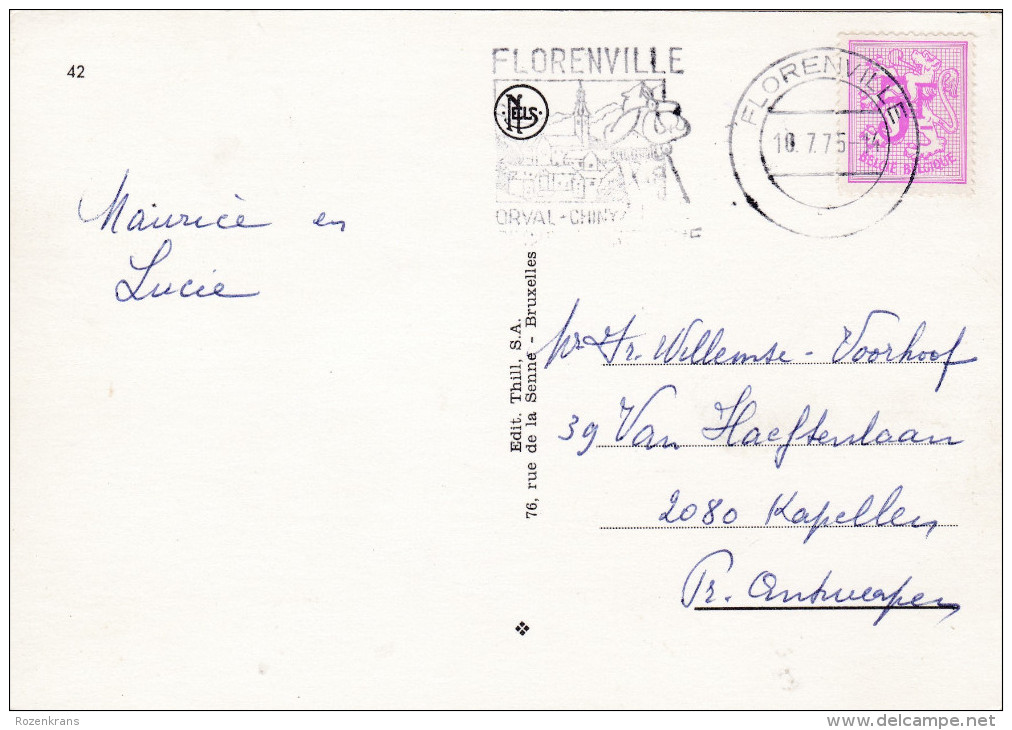 42
FLORENVILLE
NELS
ORVAL-CHINY
FLORENVILLE
10.7.75-14
5F
BELGIE BELGIQUE
Maurice en
Lucie
Edit. Thill, S.A.
76, rue de la Senne - Bruxelles
Fr. Willemse - Voorhoof
39 Van Haeftenlaan
2080 Kapellen
Pr. Antwerpen
Rozenkrans
delcampe.net